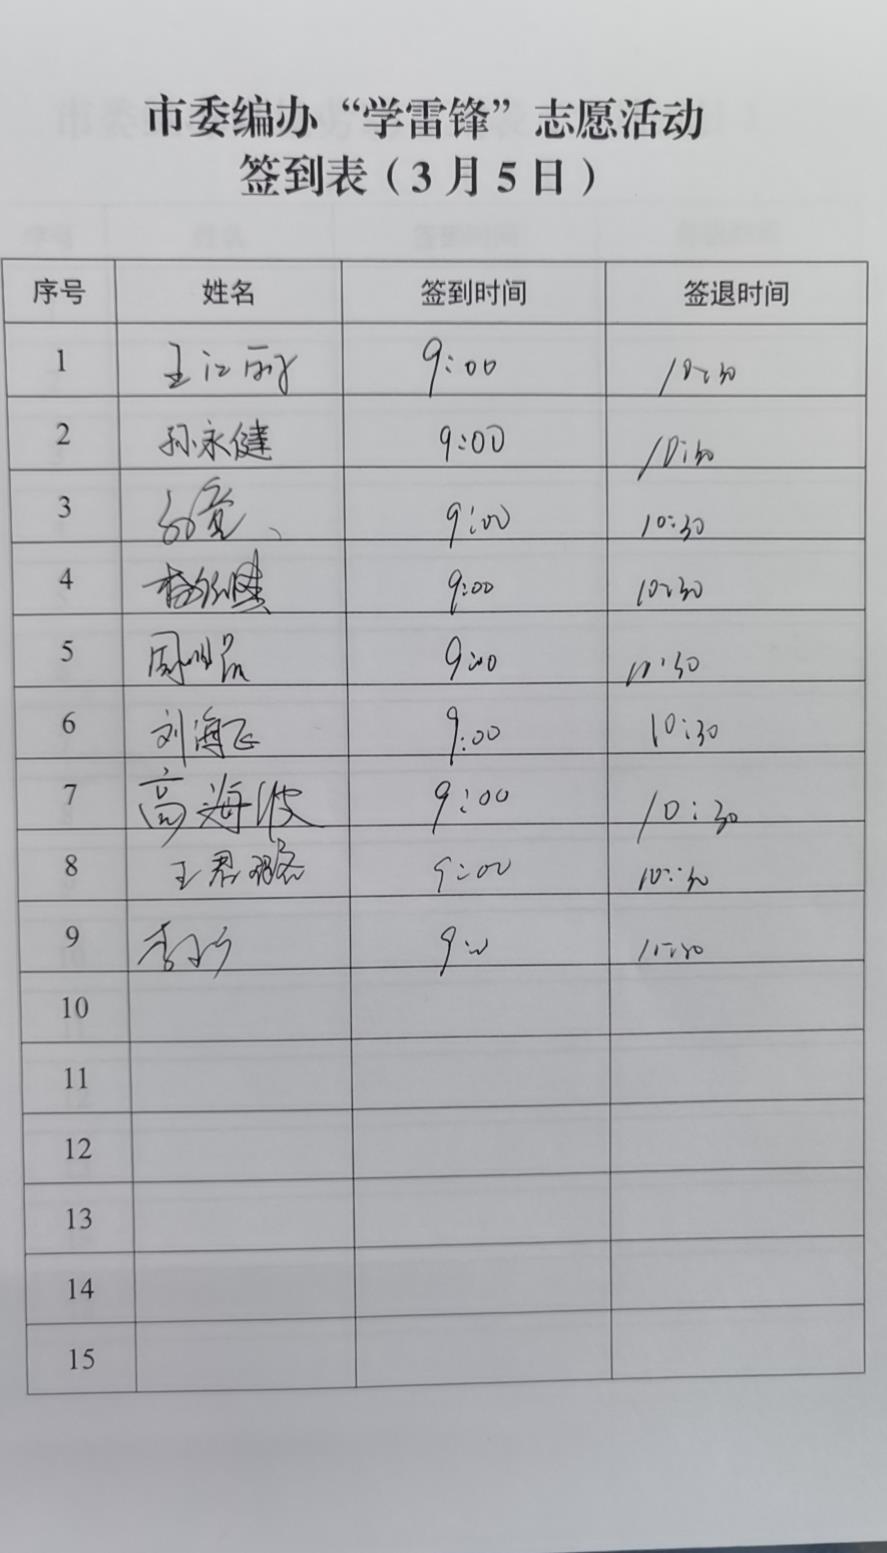 市委编办“学雷锋”志愿活动
签到表（3月5日）
序号 姓名 签到时间 签退时间
1 王江丽 9:00 10:30
2 孙永健 9:00 10:30
3 9:00 10:30
4 9:00 10:30
5 周 9:00 10:30
6 刘海飞 9:00 10:30
7 高海波 9:00 10:30
8 王君 9:00 10:30
9 李
10
11
12
13
14
15